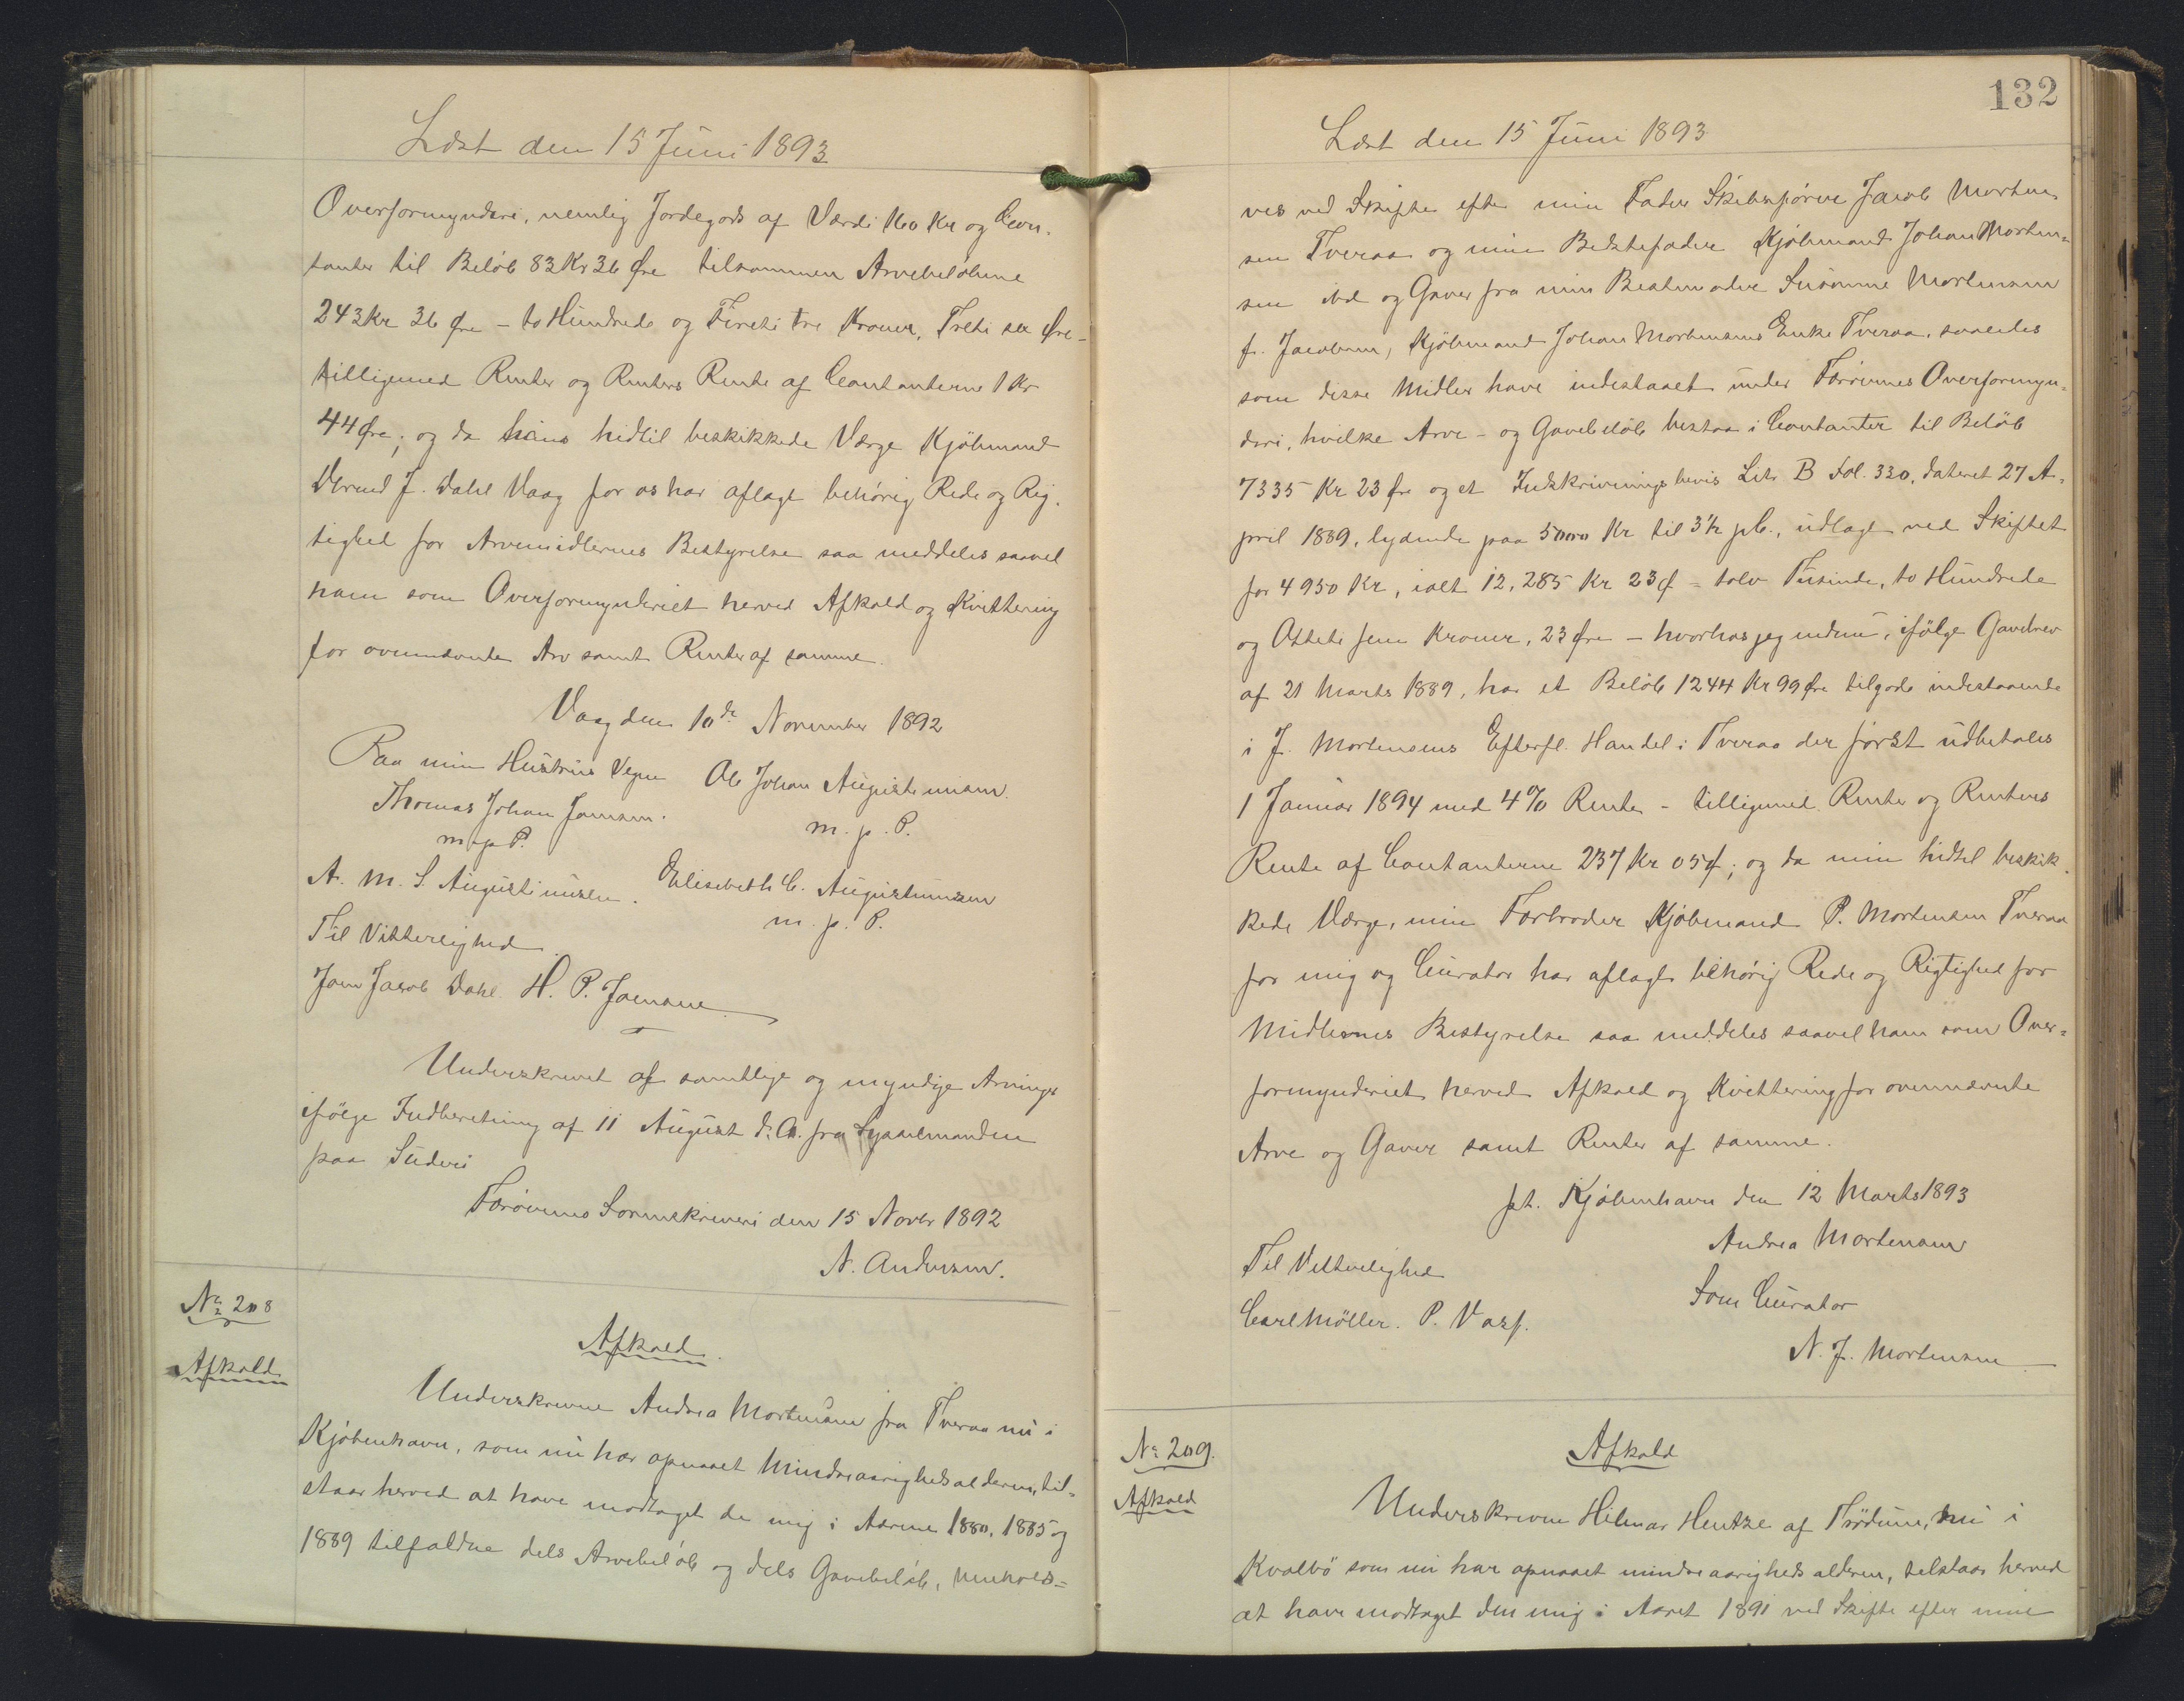 Læst den 15 Juni 1893
Overformynderi, nemlig Jordegods af Værdi 160 Kr og Con-
tanter til Beløb 83 Kr 36 Øre tilsammen Arvebeløbene
243 Kr 36 Øre - to Hundrede og Fireti tre Kroner, Treti sex Øre -
tilligemed Renter og Renters Rente af Contanterne 1 Kr
44 Øre; og da hans hidtil beskikkede Værge Kjøbmand
J. Dahl Vaag for os har aflagt behørig Rede og Rig-
tighed for Arvemidlernes Bestyrelse saa meddeles saavel
ham som Overformynderiet herved Afkald og Kvittering
for ovennævnte Arv samt Renter af samme.
Vaag den 10de November 1892
Paa min Hustrus Vegne Ole Johan Augustinusen.
Thomas Johan Joensen. m. p. P.
m. p. P.
A. M. S. Augustinusen. Elisebeth C. Augustinussen
Til Vitterlighed m. p. P.
Joen Jacob Dahl. H. P. Joensen.
Underskrevet af samtlige og myndige Arvinger
ifølge Indberetning af 11 August d. A. fra Sysselmanden
paa Suderø
Færøernes Sorenskriveri den 15 Novbr 1892
N. Andersen.
No 208
Afkald
Afkald.
Underskrevne Andrea Mortensen fra Tveraa nu i
Kjøbenhavn, som nu har opnaaet Mindreaarighedsalderen, til-
staar herved at have modtaget de mig i Aarene 1880, 1885 og
1889 tilfaldne dels Arvebeløb og dels Gavebeløb, henholds=
132
Læst den 15 Juni 1893
vis ved Skifte efter min Fader Skibsfører Jacob Morten-
sen Tveraa og min Bedstefader Kjøbmand Johan Morten-
sen ibd og Gaver fra min Bestemoder Susanne Mortensen
f. Jacobsen, Kjøbmand Johan Mortensens Enke Tveraa, saaledes
som disse Midler have indestaaet under Færøernes Overformyn-
deri, hvilke Arve- og Gavebeløb bestaa i Contanter til Beløb
7335 Kr 23 Øre og et Indskrivningsbevis Litr B Fol. 330, dateret 27 A-
pril 1889, lydende paa 5000 Kr til 3½ pC., udlagt ved Skiftet
for 4950 Kr, ialt 12,285 Kr 23 Ø = tolv Tusinde, to Hundrede
og Otteti fem Kroner, 23 Øre - hvorhos jeg endnu, ifølge Gavebrev
af 21 Marts 1889, har et Beløb 1244 Kr 99 Øre tilgode indestaaende
i J. Mortensens Efterfl. Handel i Tveraa der først udbetales
1 Januar 1894 med 4% Rente - tilligemed Renter og Renters
Rente af Contanterne 237 Kr 05 Ø; og da min hidtil beskik-
kede Værge, min Farbroder Kjøbmand P. Mortensen Tveraa
for mig og Curator har aflagt behørig Rede og Rigtighed for
Midlernes Bestyrelse saa meddeles saavel ham som Over=
formynderiet herved Afkald og Kvittering for ovennævnte
Arve og Gaver samt Renter af samme.
pt. Kjøbenhavn den 12 Marts 1893
Til Vitterlighed Andrea Mortensen
Carl Møller. P. Som Curator
N. J. Mortensen
No 209.
Afkald
Afkald
Underskrevne Hilmar Hentze af Frødum, nu i
Kvalbø som nu har opnaaet mindreaarighedsalderen, tilstaar herved
at have modtaget den mig i Aaret 1891 ved Skifte efter min